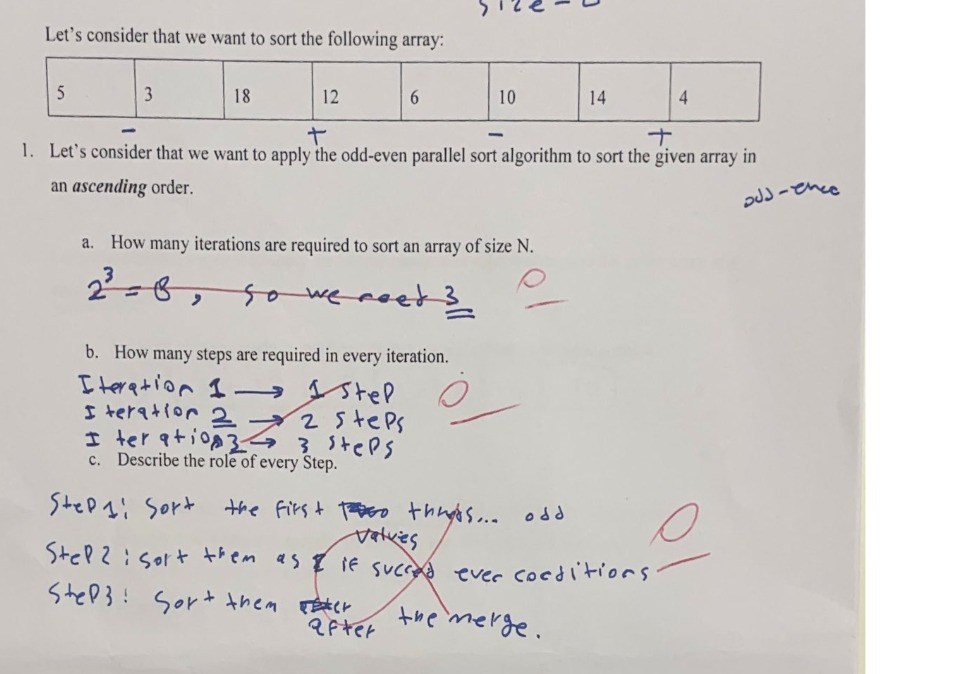 size = 8
Let's consider that we want to sort the following array:
5 3 18 12 6 10 14 4
- + - +
1. Let's consider that we want to apply the odd-even parallel sort algorithm to sort the given array in
an ascending order.
odd-
a. How many iterations are required to sort an array of size N.
2³ = 8, so we need 3
0
b. How many steps are required in every iteration.
Iteration 1 → 1 step
0
Iteration 2 → 2 steps
Iteration 3 → 3 steps
c. Describe the role of every Step.
Step 1: Sort the first odd
values
0
Step 2: Sort them as if conditions
Step 3: Sort them
after the merge.